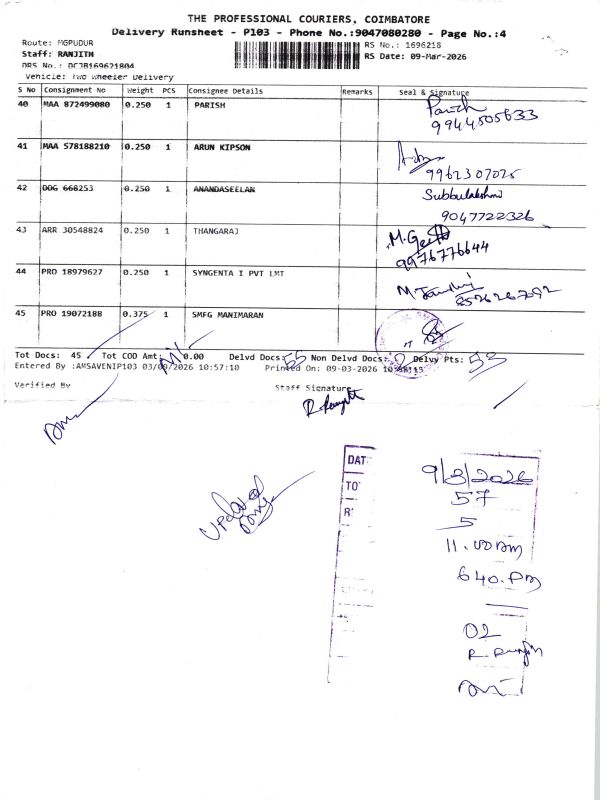 THE PROFESSIONAL COURIERS, COIMBATORE
Delivery Runsheet - P103 - Phone No.:9047080280 - Page No.:4
Route: MGPUDUR
RS No.: 1696218
Staff: RANJITH
RS Date: 09-Mar-2026
DRS No.: DCJB1696218O4
Vehicle: Two Wheeler Delivery
S No Consignment No Weight PCS Consignee Details Remarks Seal & Signature
40 MAA 872499080 0.250 1 PARISH
9944505633
41 MAA 578188210 0.250 1 ARUN KIPSON
9962307025
42 DDG 668253 0.250 1 ANANDASEELAN Subbulakshmi
9047722326
43 ARR 30548824 0.250 1 THANGARAJ M.Geetha
9976776644
44 PRO 18979627 0.250 1 SYNGENTA I PVT LMT
45 PRO 19072188 0.375 1 SMFG MANIMARAN
Tot Docs: 45 Tot COD Amt: 0.00 Delvd Docs: 55 Non Delvd Docs: 2 Delvy Pts: 53
Entered By :AMSAVENIP103 03/09/2026 10:57:10 Printed On: 09-03-2026
Verified By Staff Signature
Updated
DAT 9/3/2026
TO 57
R 5
11.00 Am
640.PM
02